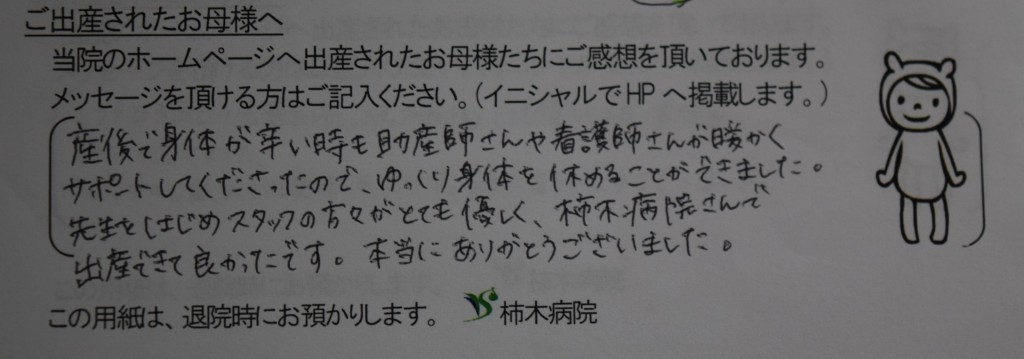 ご出産されたお母様へ
当院のホームページへ出産されたお母様たちにご感想を頂いております。
メッセージを頂ける方はご記入ください。(イニシャルでHPへ掲載します。)
産後で身体が辛い時も助産師さんや看護師さんが暖かく
サポートしてくださったので、ゆっくり身体を休めることができました。
先生をはじめスタッフの方々がとても優しく、柿木病院さんで
出産できて良かったです。本当にありがとうございました。
この用紙は、退院時にお預かりします。 柿木病院